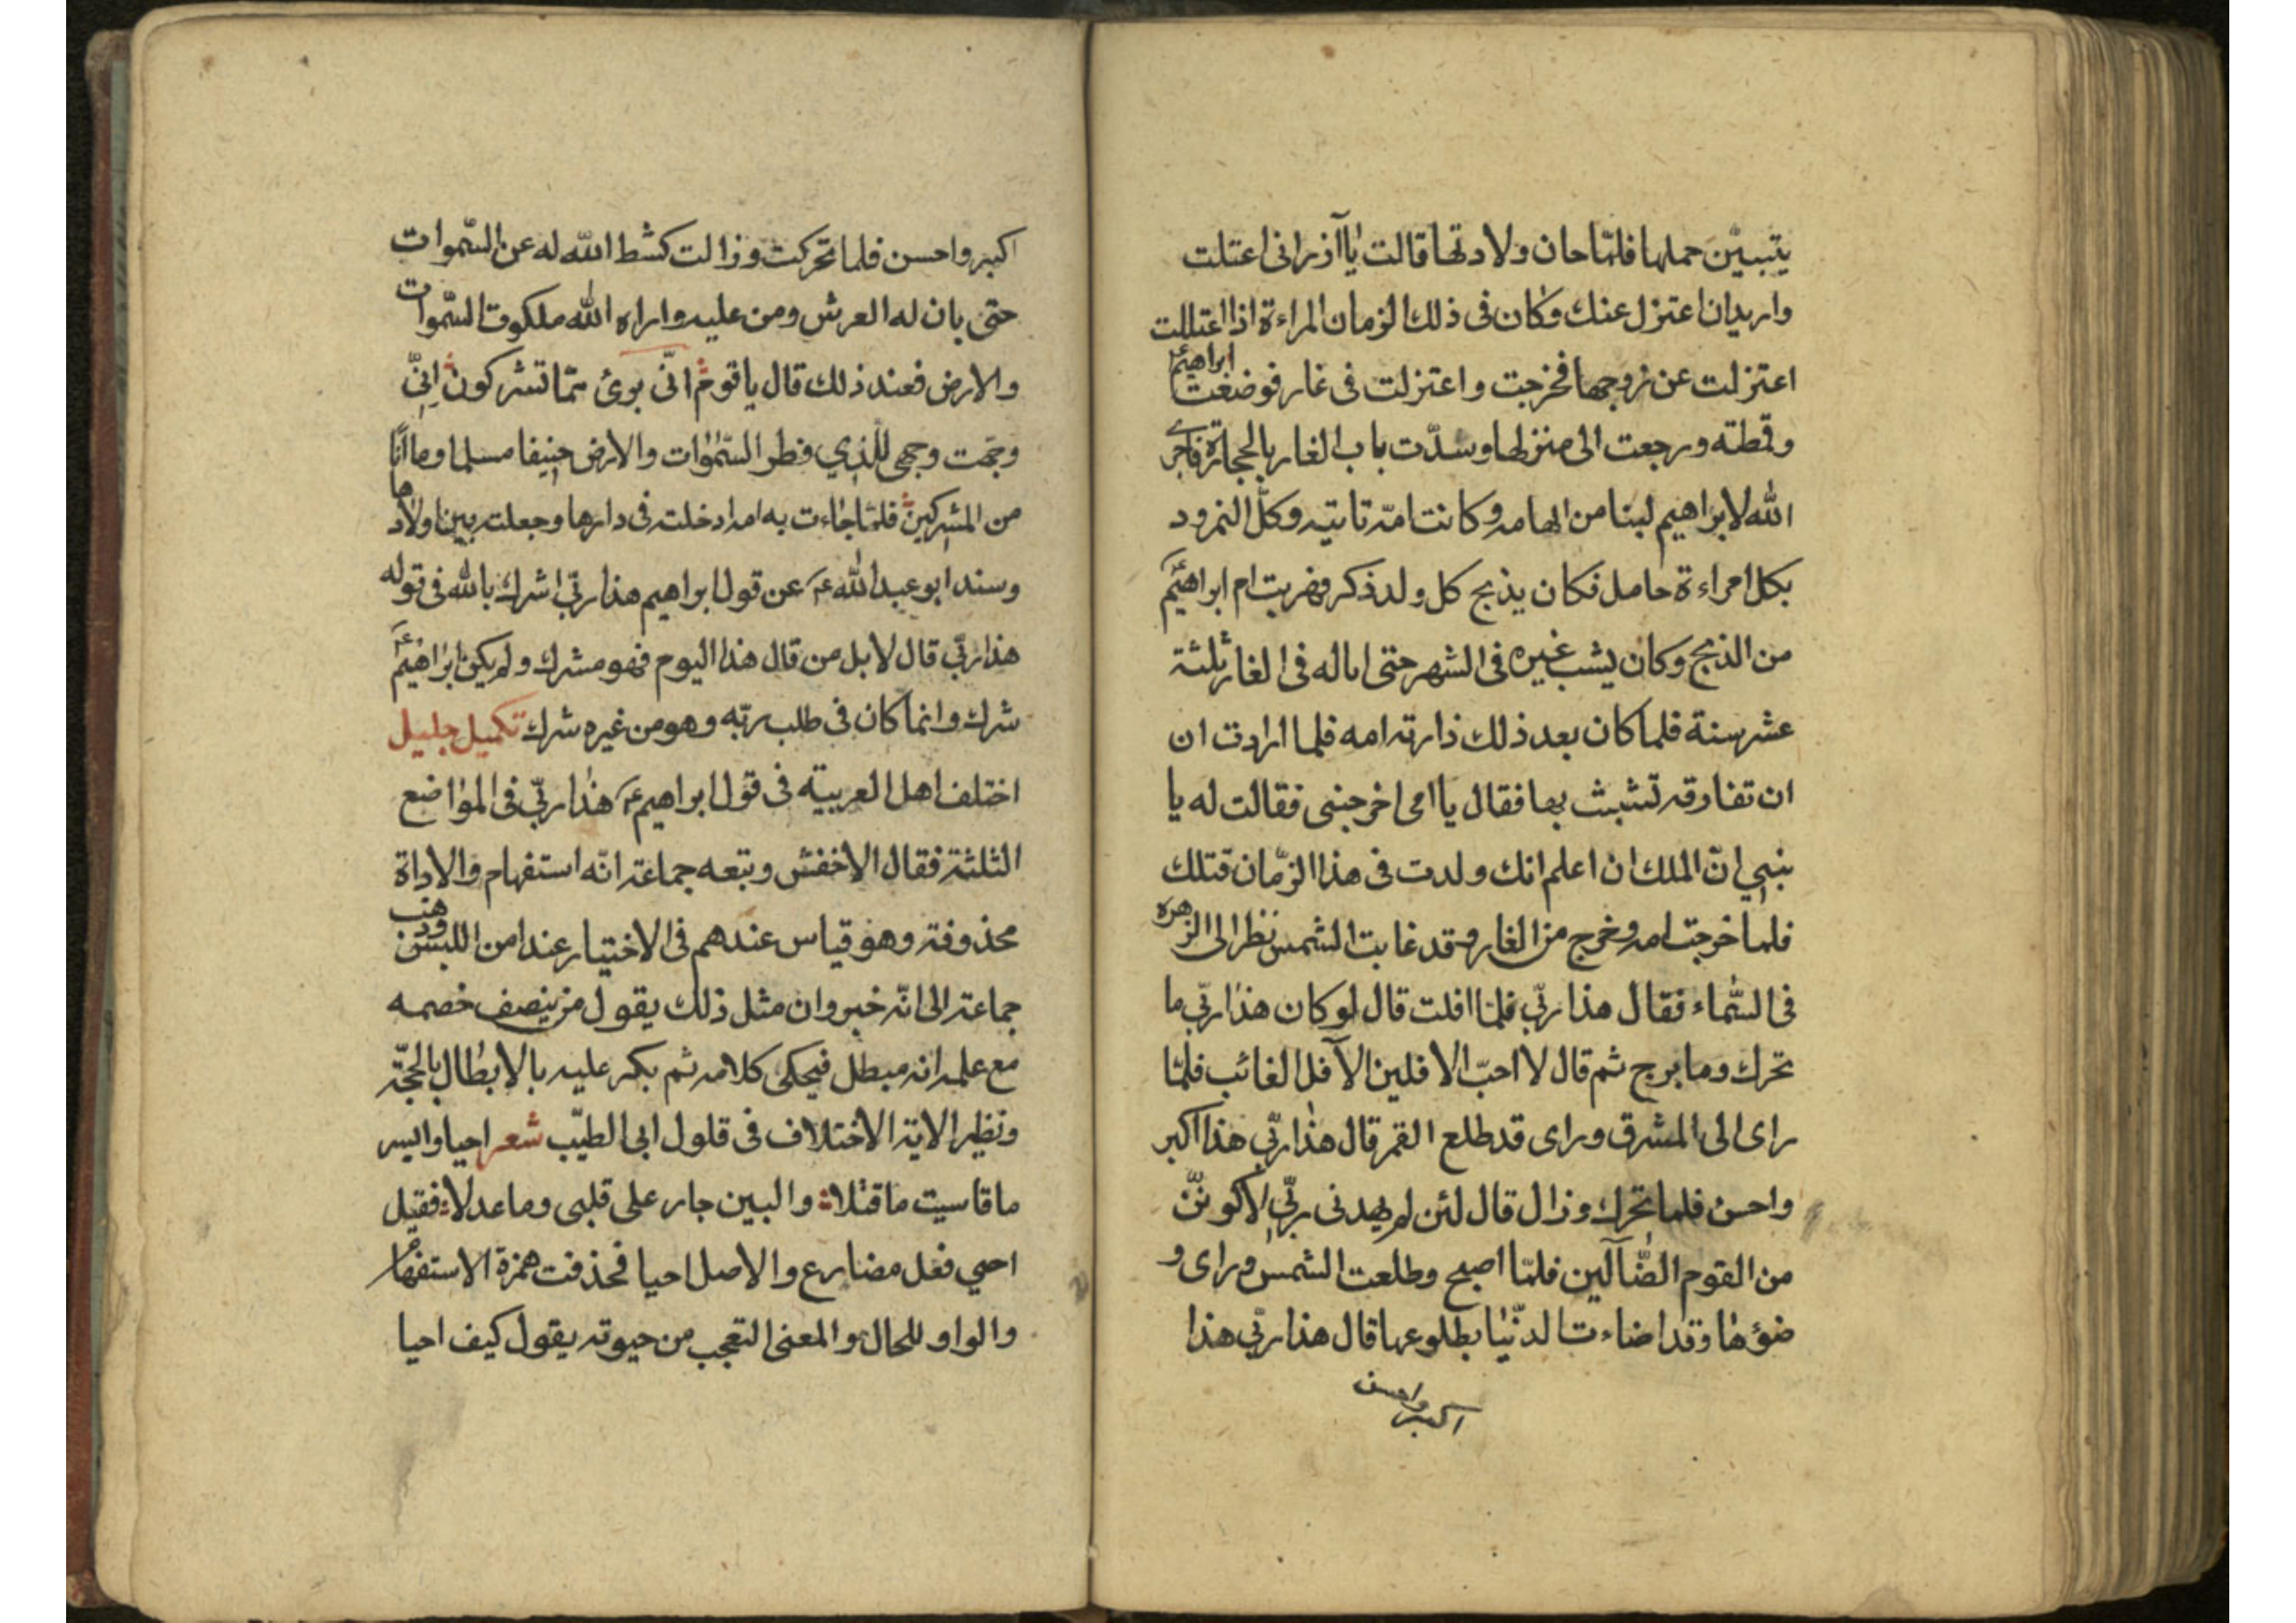 يتبيّن حملها فلمّا حان ولادتها قالت يا آذر انى اعتلت
واريد ان اعتزل عنك وكان فى ذلك الزمان المراءة اذا اعتللت
اعتزلت عن زوجها فخرجت و اعتزلت فى غار فوضعت ابراهيم ع
وقمطته ورجعت الى منزلها وسدّت باب الغار بالحجارة فاجرى
الله لابراهيم لبنا من ابهامه وكانت امّه تاتيه وكّل النمرود
بكل امراءة حامل فكان يذبح كل ولد ذكر فهربت ام ابراهيم ع
من الذبح وكان يشب غيره فى الشهر حتى اتا له فى الغار ثلثة
عشر سنة فلما كان بعد ذلك زارته امه فلما ارادت ان
ان تفارقه تشبث بها فقال يا امى اخرجينى فقالت له يا
بنيي انّ الملك ان اعلم انك ولدت فى هذا الزّمان قتلك
فلما خرجت امه وخرج من الغار وقد غابت الشمس نظر الى الزهره
فى السّماء فقال هذا ربّى فلمّا افلت قال لو كان هذا ربّى ما
تحرك وما برح ثم قال لا احبّ الافلين الآفل الغائب فلمّا
راى الى المشرق وراى قد طلع القمر قال هذا ربّى هذا اكبر
واحسن فلما تحرك وزال قال لئن لم يهدنى ربّى لاكوننّ
من القوم الضّآلّين فلمّا اصبح وطلعت الشمس وراى و
ضوؤها وقد اضاءت الدنّيا بطلوعها قال هذا ربّى هذا
اكبر واحسن
اكبر واحسن فلما تحركت وزالت كشط الله له عن السّموات
حتى بان له العرش ومن عليه واراه الله ملكوت السّموات
والارض فعند ذلك قال يا قوم انّى برئ ممّا تشركون انّى
وجّهت وجهى للّذي فطر السّمٰوات والارض حنيفا مسلما وما انا
من المشركين فلمّا جاءت به امه ادخلته فى دارها وجعلته بين اولادها
وسئد ابو عبد الله ع عن قول ابراهيم هذا ربّى اشرك بالله فى قوله
هذا ربّى قال لا بل من قال هذا اليوم فهو مشرك ولم يكن ابراهيم ع
شرك وانما كان فى طلب ربّه وهو من غيره شرك تكميل جليل
اختلف اهل العربيته فى قول ابراهيم ع هذا ربّى فى المواضع
الثلثة فقال الاخفش وتبعه جماعة انّه استفهام والاداة
محذوفة وهو قياس عندهم فى الاختيار عند امن اللبس وذهب
جماعة الى انّه خبر وان مثل ذلك يقول من ينصف خصمه
مع علمه انه مبطل فيحكى كلامه ثم يكر عليه بالابطال بالحجّة
ونظير الاية الاختلاف فى قلول ابى الطيّب شعر احيا وايسر
ما قاسيت ما قتلا والبين جار على قلبى وما عدلا فقيل
احيي فعل مضارع والاصل احيا فحذفت همزة الاستفهام
والواو للحال والمعنى التعجب من حيوته يقول كيف احيا